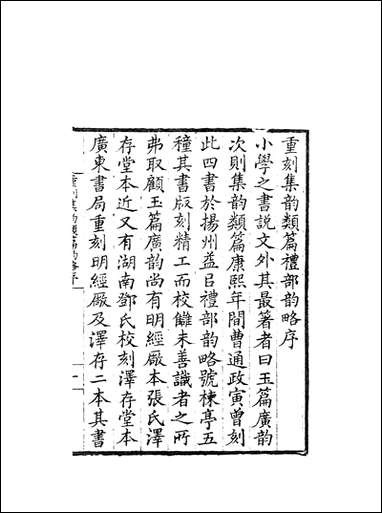 重刻集韵類篇禮部韵略序
小學之書説文外其最著者曰玉篇廣韵
次則集韵類篇康熙年間曹通政寅曾刻
此四書於揚州益㠯禮部韵略號楝亭五
種其書版刻精工而校讎未善識者之所
弗取顧玉篇廣韵尚有明經厰本張氏澤
存堂本近又有湖南鄧氏校刻澤存堂本
廣東書局重刻明經厰及澤存二本其書